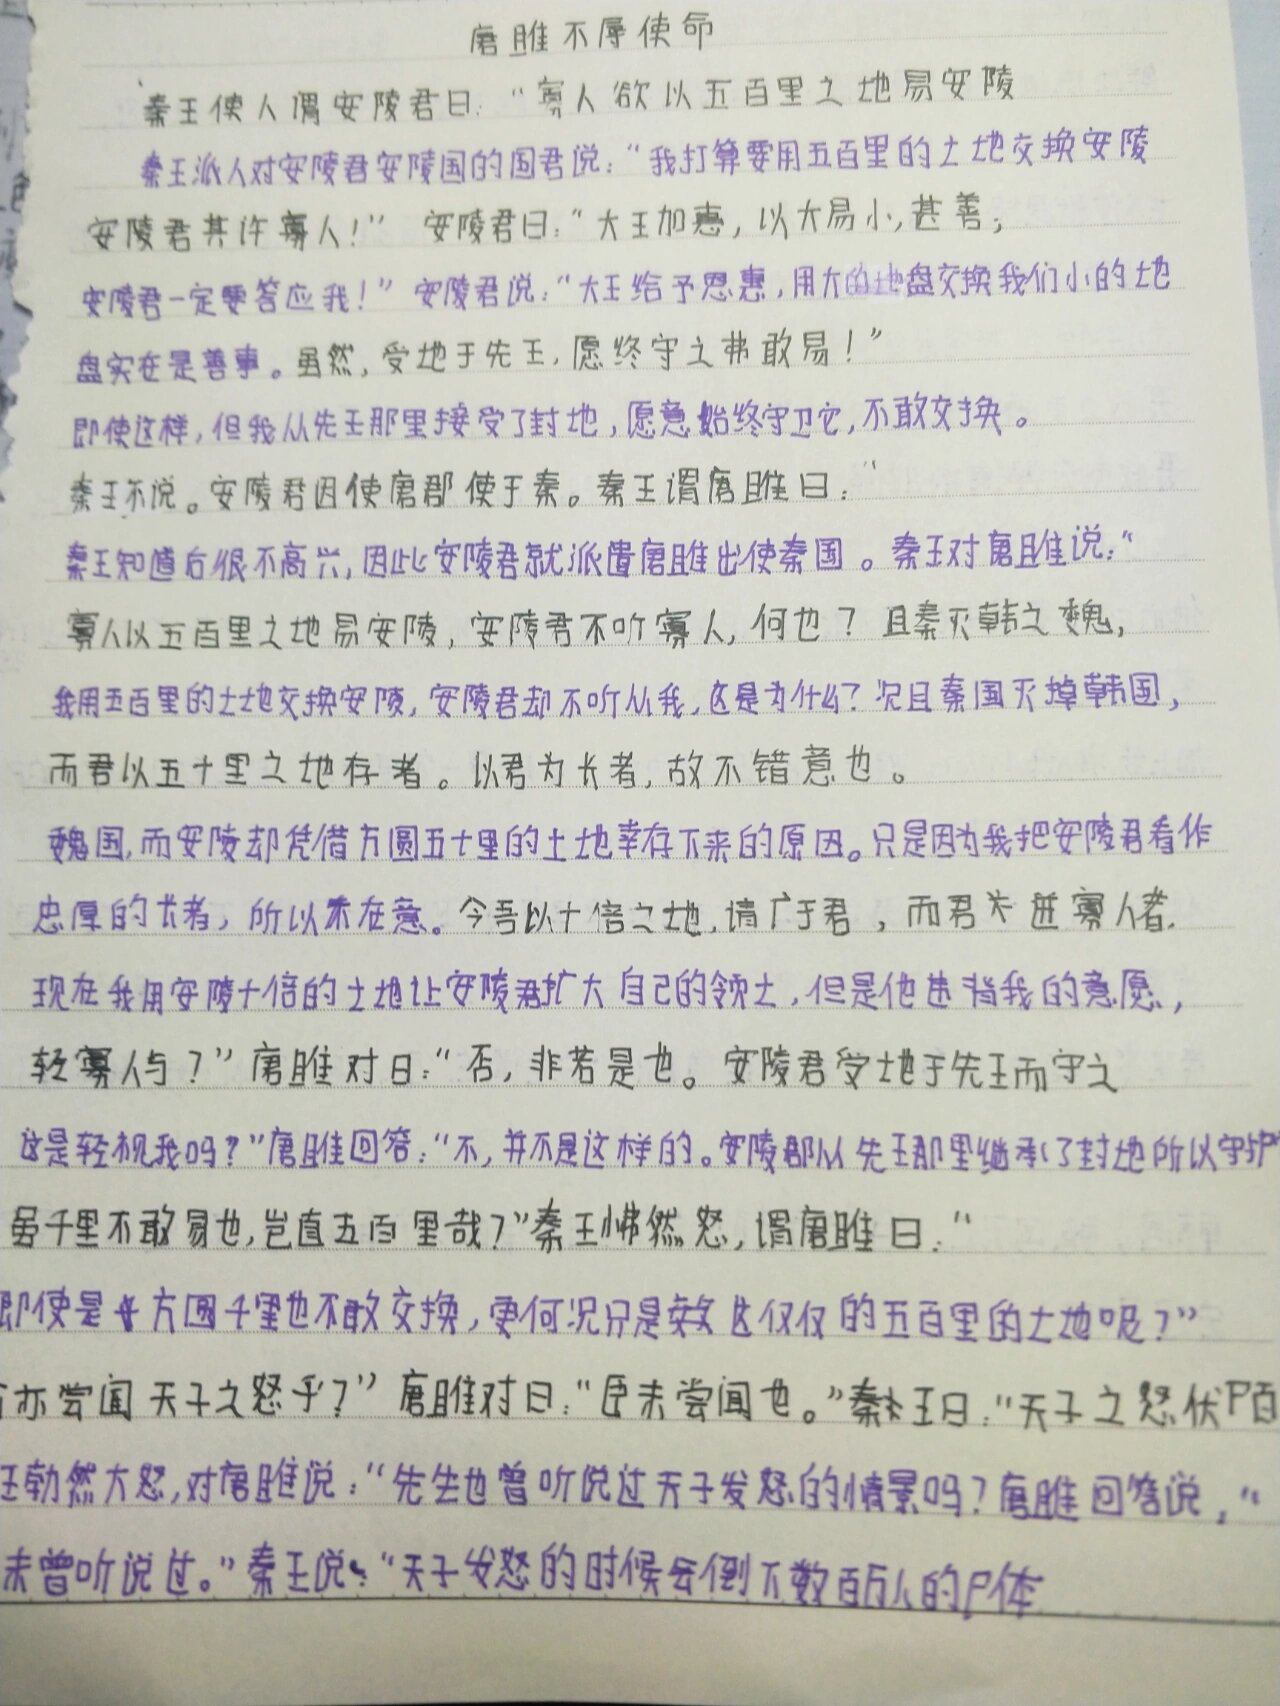 唐雎不辱使命
秦王使人谓安陵君曰："寡人欲以五百里之地易安陵
秦王派人对安陵君安陵国的国君说："我打算要用五百里的土地交换安陵
安陵君其许寡人！" 安陵君曰："大王加惠，以大易小，甚善；
安陵君一定要答应我！" 安陵君说："大王给予恩惠，用大的地盘交换我们小的土地
盘实在是善事。虽然，受地于先王，愿终守之弗敢易！"
即使这样，但我从先王那里接受了封地，愿意始终守卫它，不敢交换。
秦王不说。安陵君因使唐郡使于秦。秦王谓唐雎曰："
秦王知道后很不高兴，因此安陵君就派遣唐雎出使秦国。秦王对唐雎说："
寡人以五百里之地易安陵，安陵君不听寡人，何也？且秦灭韩之魏，
我用五百里的土地交换安陵，安陵君却不听从我，这是为什么？况且秦国灭掉韩国，
而君以五十里之地存者。以君为长者，故不错意也。
魏国，而安陵却凭借方圆五十里的土地幸存下来的原因。只是因为我把安陵君看作
忠厚的长者，所以未在意。今吾以十倍之地，请广于君，而君 寡人者，
现在我用安陵十倍的土地让安陵君扩大自己的领土，但是他违背我的意愿，
轻寡人与？"唐雎对曰："否，非若是也。安陵君受地于先王而守之
这是轻视我吗？"唐雎回答："不，并不是这样的。安陵郡从先王那里继承了封地所以守护
虽千里不敢易也，岂直五百里哉？"秦王怫然怒，谓唐雎曰："
即使是方圆千里也不敢交换，更何况只是这仅仅的五百里的土地呢？"
亦尝闻天子之怒乎？"唐雎对曰："臣未尝闻也。"秦王曰："天子之怒伏
王勃然大怒，对唐雎说："先生也曾听说过天子发怒的情景吗？唐雎回答说，"
未曾听说过。"秦王说："天子发怒的时候会倒下数百万人的尸体